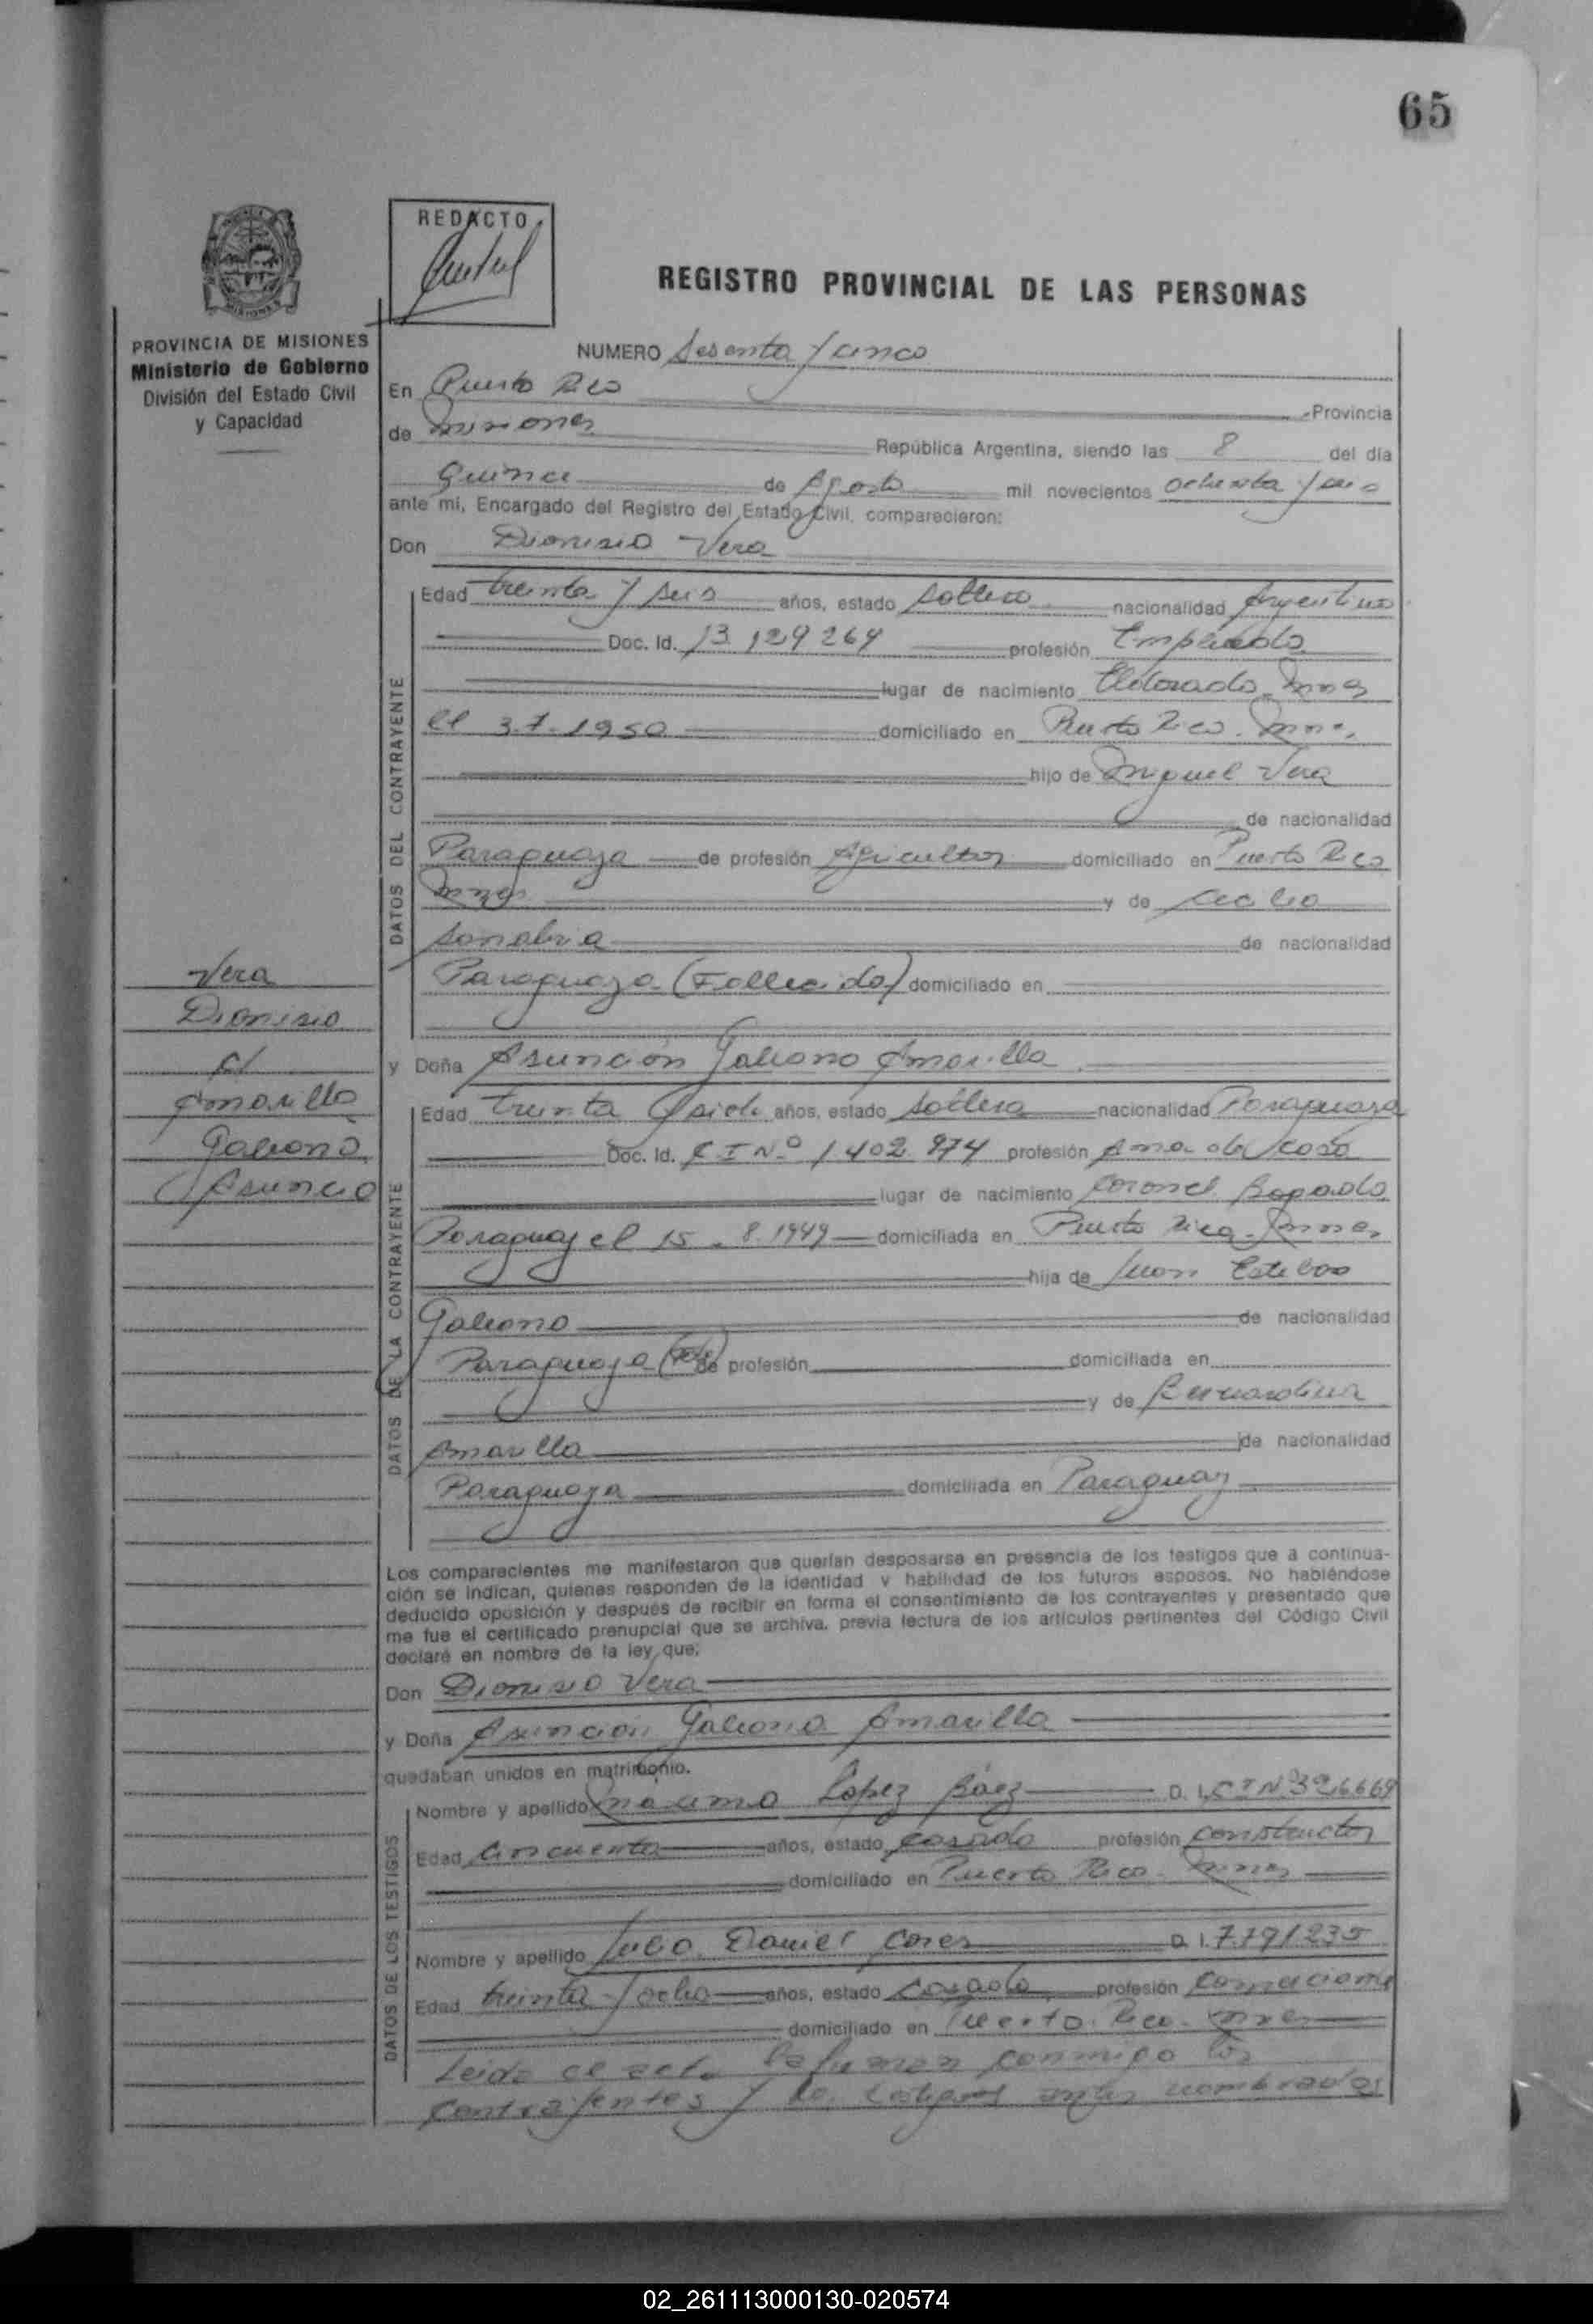 65
REDACTO
REGISTRO PROVINCIAL DE LAS PERSONAS
PROVINCIA DE MISIONES
Ministerio de Gobierno
División del Estado Civil
y Capacidad
NUMERO Sesenta y cinco
En Puerto Rico Provincia
de Misiones República Argentina, siendo las 8 del día
Quince de Agosto mil novecientos ochenta y
ante mi, Encargado del Registro del Estado Civil, comparecieron:
Don Dionisio Vera
DATOS DEL CONTRAYENTE
Edad treinta y seis años, estado soltero nacionalidad Argentino
Doc. Id. 13.129264 profesión Empleado
lugar de nacimiento Eldorado Mnes
el 3.7.1950 domiciliado en Puerto Rico. Mnes.
hijo de Miguel Vera
de nacionalidad
Paraguaya de profesión Agricultor domiciliado en Puerto Rico
Mnes y de Cecilia
Sanabria de nacionalidad
Paraguaya (Fallecida) domiciliado en
y Doña Asunción Galeano Amarilla
DATOS DE LA CONTRAYENTE
Edad treinta y siete años, estado soltera nacionalidad Paraguaya
Doc. Id. C I Nº 1402.974 profesión Ama de casa
lugar de nacimiento Coronel Bogado
Paraguay el 15.8.1949 domiciliada en Puerto Rico. Mnes
hija de Juan Esteban
Galeano de nacionalidad
Paraguaya de profesión domiciliada en
y de Bernardina
Amarilla de nacionalidad
Paraguaya domiciliada en Paraguay
Vera
Dionisio
c/
Amarilla
Galeano
Asuncio
Los comparecientes me manifestaron que querían desposarse en presencia de los testigos que a continua-
ción se indican, quienes responden de la identidad y habilidad de los futuros esposos. No habiéndose
deducido oposición y después de recibir en forma el consentimiento de los contrayentes y presentado que
me fue el certificado prenupcial que se archiva, previa lectura de los artículos pertinentes del Código Civil
declaré en nombre de la ley que:
Don Dionisio Vera
y Doña Asunción Galeano Amarilla
quedaban unidos en matrimonio.
DATOS DE LOS TESTIGOS
Nombre y apellido Maximo López Báez D. I. C I Nº 326669
Edad cincuenta años, estado casado profesión constructor
domiciliado en Puerto Rico. Mnes
Nombre y apellido Julio Daniel D. I. 7.791.235
Edad treinta y ocho años, estado casado profesión
domiciliado en Puerto Rico. Mnes
Leida el acta la firman conmigo los
contrayentes y los testigos antes nombrados
02_261113000130-020574